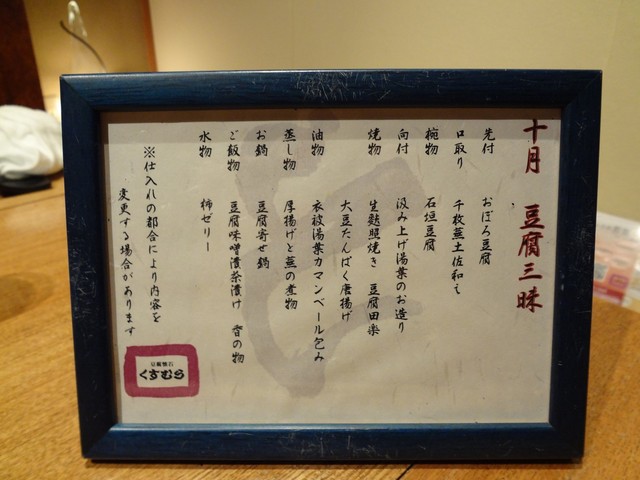 十月 豆腐三昧
先付 おぼろ豆腐
口取り 千枚蕪土佐和え
椀物 石垣豆腐
向付 汲み上げ湯葉のお造り
焼物 生麩照焼き 豆腐田楽
大豆たんぱく唐揚げ
油物 衣被湯葉カマンベール包み
蒸し物 厚揚げと蕪の煮物
お鍋 豆腐寄せ鍋
ご飯物 豆腐味噌漬茶漬け 香の物
水物 柿ゼリー
※仕入れの都合により内容を
変更する場合があります
豆腐懐石
くすむら